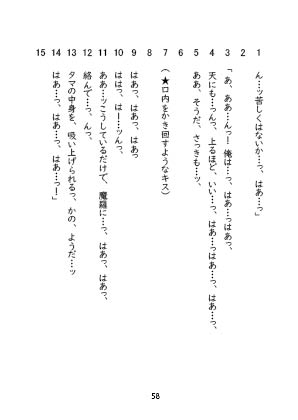 1 ん…ッ苦しくはないか…っ、はあ…っ」
2
3 「あ、ああ…んっ！俺は…っ、はあ…っはあっ、
4 天にも…っんっ、上るほど、いい…っ、はあ…っはあ…っ、はあ…っ、
5 ああ、そうだ、さっきも…ッ、
6
7 （★口内をかき回すようなキス）
8
9 はあっ、はあっ、はあっ
10 ははっ、はー…ッんっ、
11 ああ…ッこうしているだけで、魔羅に…っ、はあっ、はあっ、
12 絡んで…っ、んっ、
13 タマの中身を、吸い上げられるっ、かの、ようだ…ッ
14 はあ…っ、はあっ、はあ…っ！」
15
58